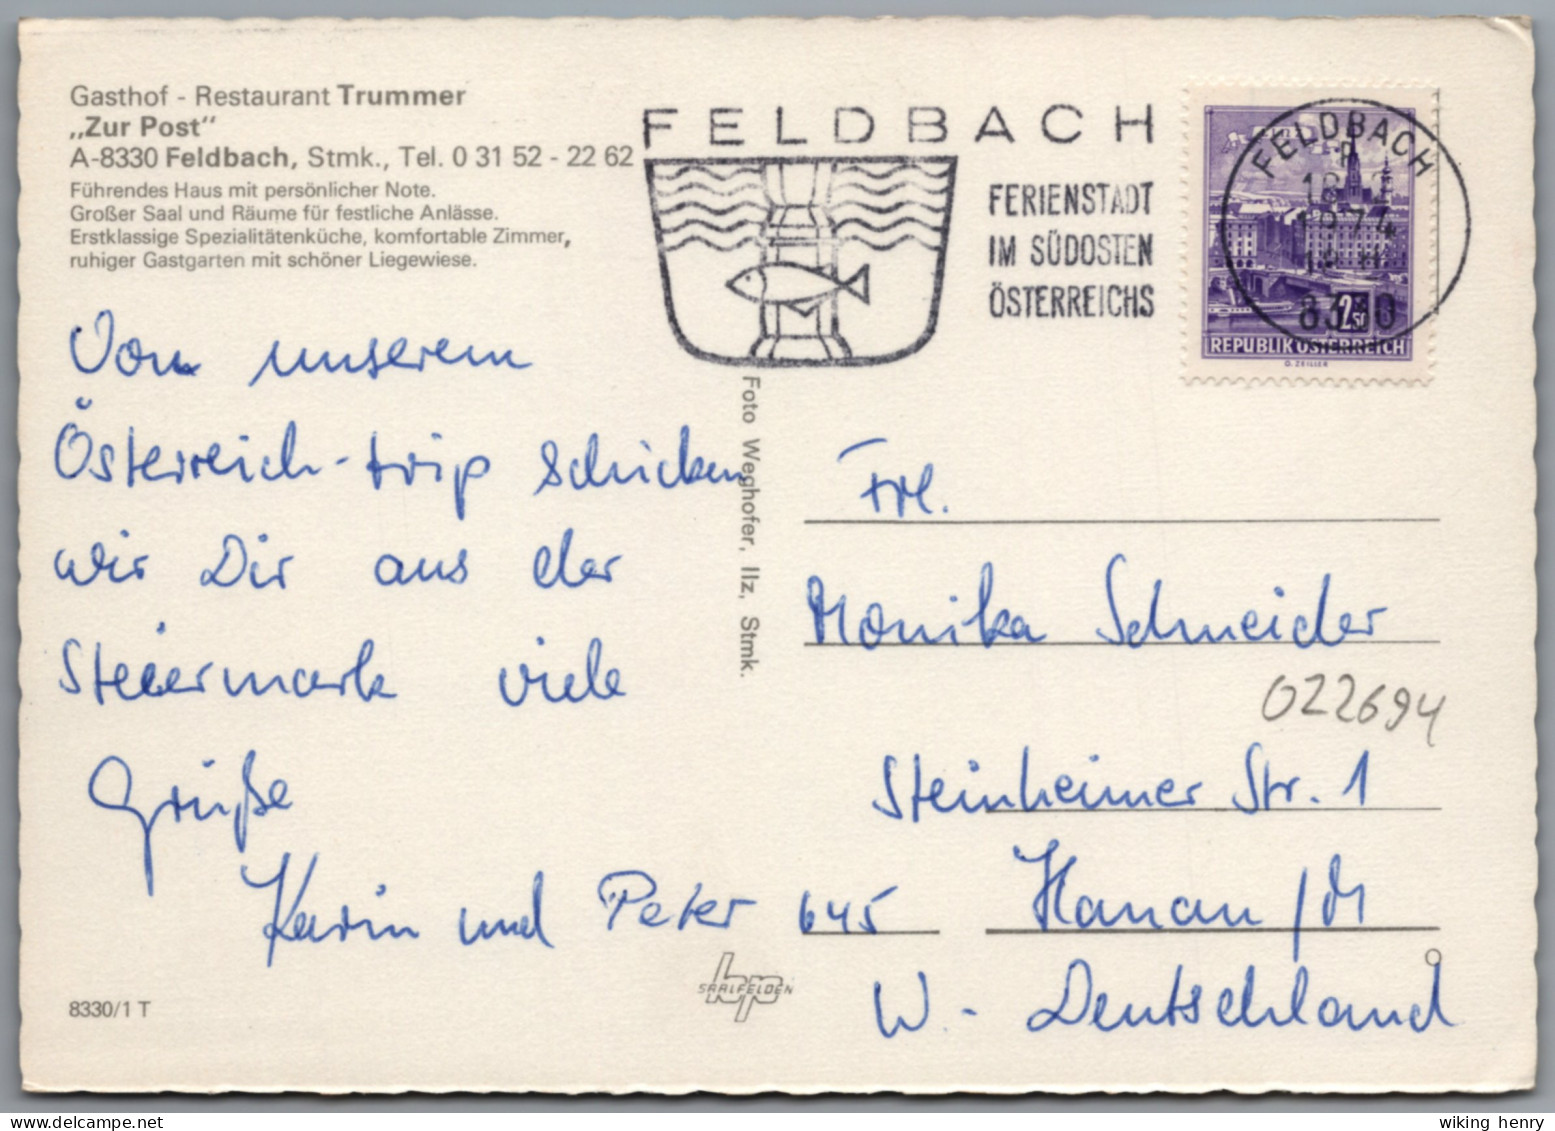 Gasthof - Restaurant Trummer
„Zur Post“
A-8330 Feldbach, Stmk., Tel. 0 31 52 - 22 62
Führendes Haus mit persönlicher Note.
Großer Saal und Räume für festliche Anlässe.
Erstklassige Spezialitätenküche, komfortable Zimmer,
ruhiger Gastgarten mit schöner Liegewiese.
FELDBACH
FERIENSTADT
IM SÜDOSTEN
ÖSTERREICHS
FELDBACH
1974
8330
2.50
REPUBLIK ÖSTERREICH
O. ZEILLER
Von unserem
Österreich-trip schicken
wir Dir aus der
Steiermark viele
Grüße
Karin und Peter
Foto Weghofer, Ilz, Stmk.
Frl.
Monika Schneider
022694
Steinheimer Str. 1
645 Hanau/M
W.-Deutschland
bp
SAALFELDEN
8330/1 T
wiking henry